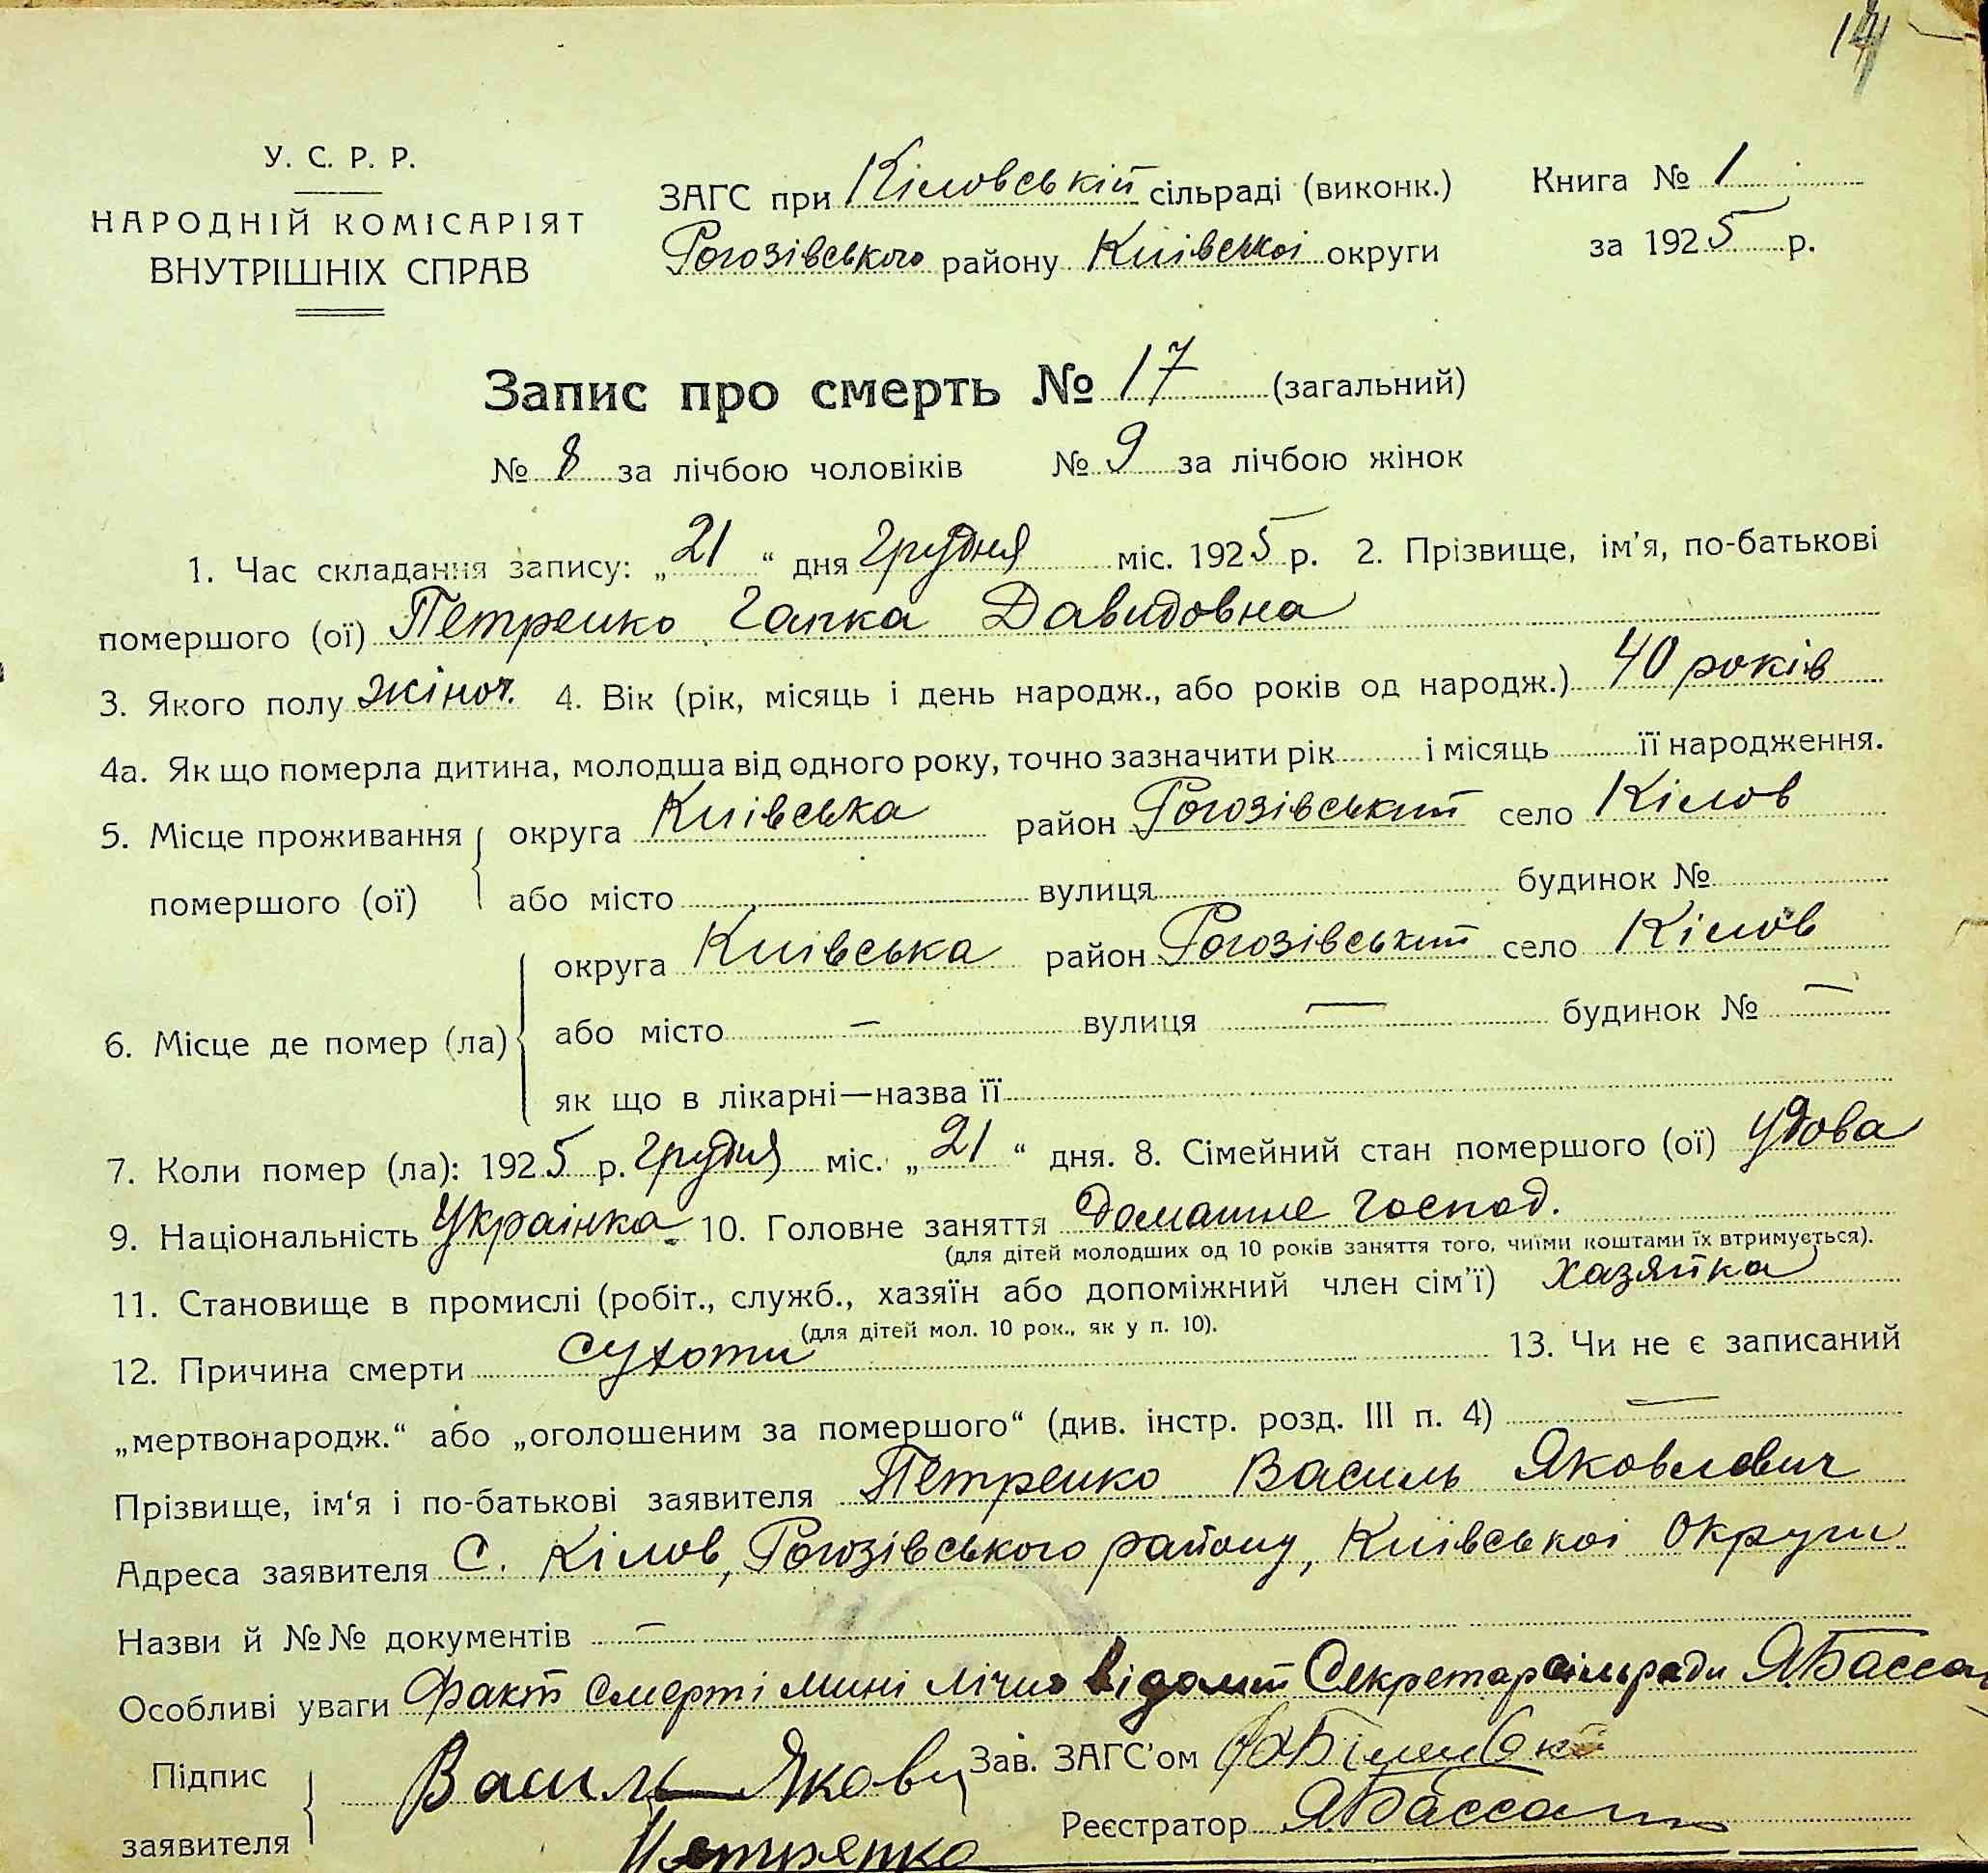 14
У. С. Р. Р.
НАРОДНІЙ КОМІСАРІЯТ
ВНУТРІШНІХ СПРАВ
ЗАГС при Кіловській сільраді (виконк.)
Рогозівського району Київської округи
Книга № 1
за 1925 р.
Запис про смерть № 17 (загальний)
№ 8 за лічбою чоловіків № 9 за лічбою жінок
1. Час складання запису: „21“ дня Грудня міс. 1925 р. 2. Прізвище, ім’я, по-батькові
помершого (ої) Петренко Гапка Давидовна
3. Якого полу жіноч. 4. Вік (рік, місяць і день народж., або років од народж.) 40 років
4а. Як що померла дитина, молодша від одного року, точно зазначити рік і місяць її народження.
5. Місце проживання округа Київська район Рогозівський село Кілов
помершого (ої) або місто вулиця будинок №
округа Київська район Рогозівський село Кілов
6. Місце де помер (ла) або місто — вулиця — будинок № —
як що в лікарні—назва її
7. Коли помер (ла): 1925 р. Грудня міс. „21“ дня. 8. Сімейний стан помершого (ої) удова
9. Національність Українка 10. Головне заняття Домашне господ.
(для дітей молодших од 10 років заняття того, чиїми коштами їх втримується).
11. Становище в промислі (робіт., служб., хазяїн або допоміжний член сім’ї) хазяйка
(для дітей мол. 10 рок., як у п. 10).
12. Причина смерти сухоти 13. Чи не є записаний
„мертвонародж.“ або „оголошеним за помершого“ (див. інстр. розд. III п. 4) —
Прізвище, ім‘я і по-батькові заявителя Петренко Василь Яковлевич
Адреса заявителя С. Кілов, Рогозівського району, Київської Округи
Назви й №№ документів —
Особливі уваги Факт смерті мині лічно відомий Секретар сільради Я.Бассан
Підпис Василь Якови Зав. ЗАГС’ом
заявителя Петренко Реєстратор Я.Бассан